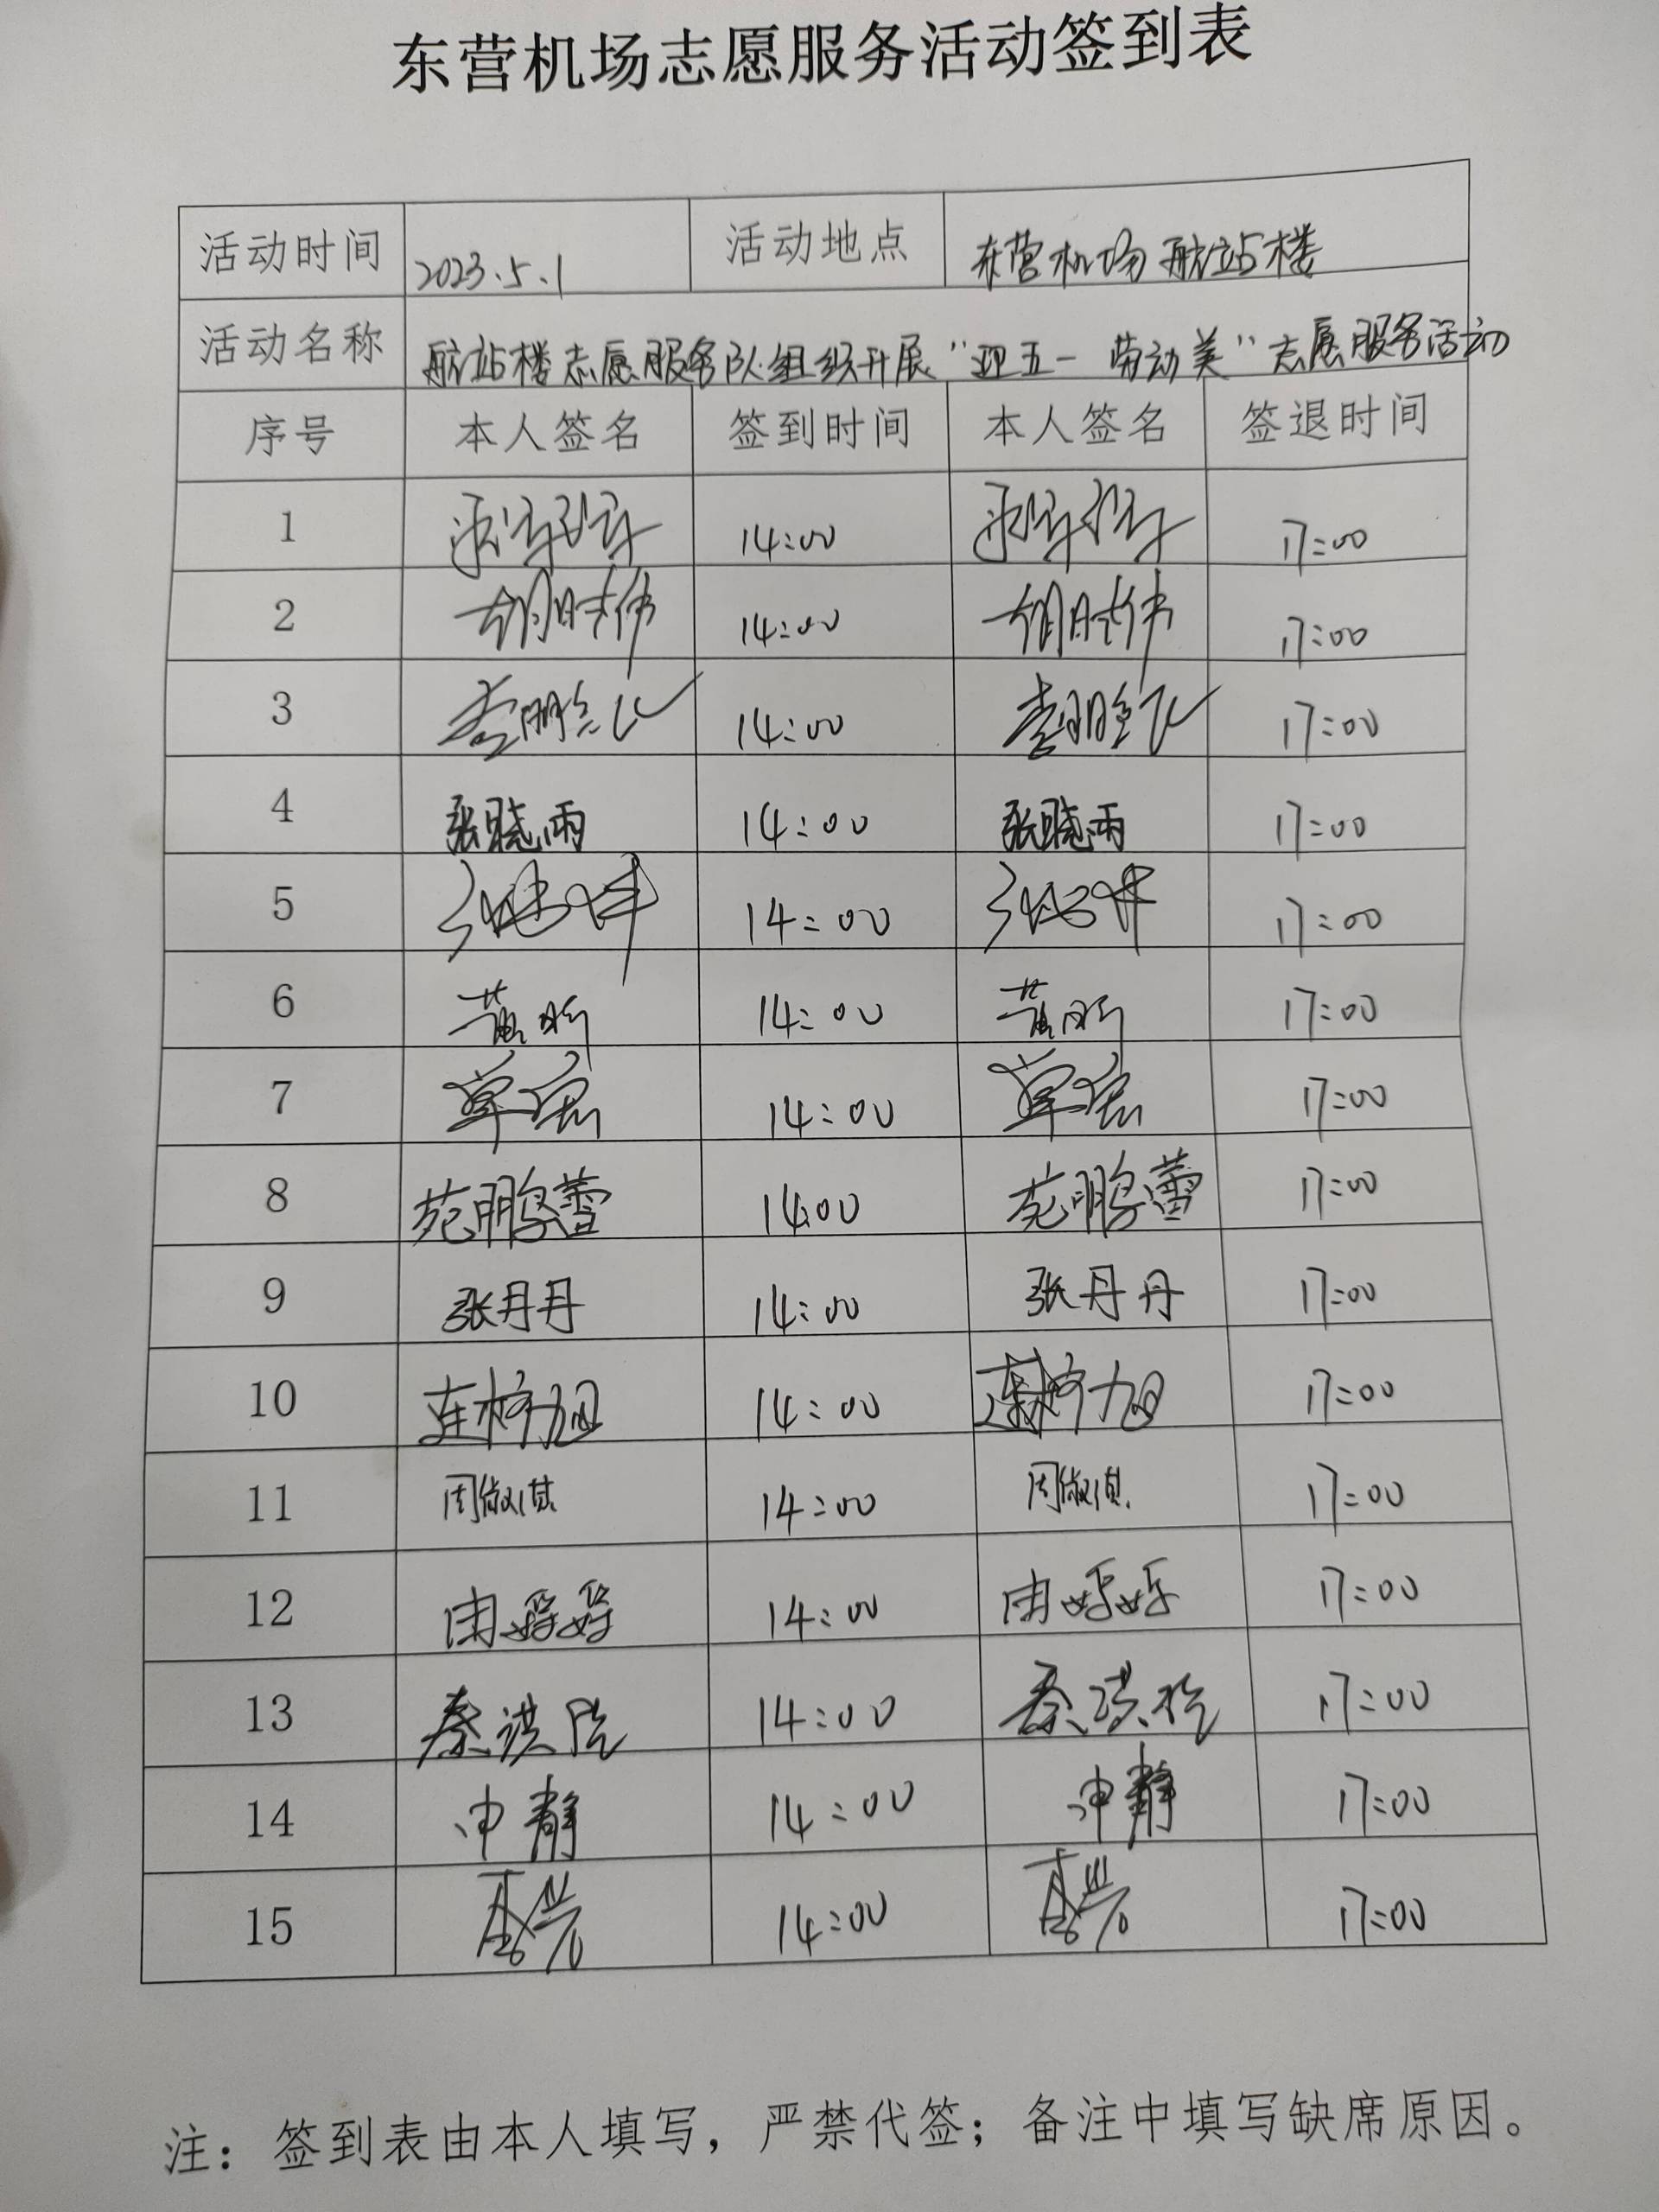 东营机场志愿服务活动签到表
活动时间 2023.5.1 活动地点 东营机场航站楼
活动名称 航站楼志愿服务队组织开展“迎五一 劳动美”志愿服务活动
序号 本人签名 签到时间 本人签名 签退时间
1 14:00 17:00
2 胡时伟 14:00 胡时伟 17:00
3 李鹏飞 14:00 李鹏飞 17:00
4 张晓雨 14:00 张晓雨 17:00
5 14:00 17:00
6 14:00 17:00
7 14:00 17:00
8 苑鹏蕾 14:00 苑鹏蕾 17:00
9 张丹丹 14:00 张丹丹 17:00
10 14:00 17:00
11 14:00 17:00
12 14:00 17:00
13 14:00 17:00
14 申静 14:00 申静 17:00
15 14:00 17:00
注：签到表由本人填写，严禁代签；备注中填写缺席原因。